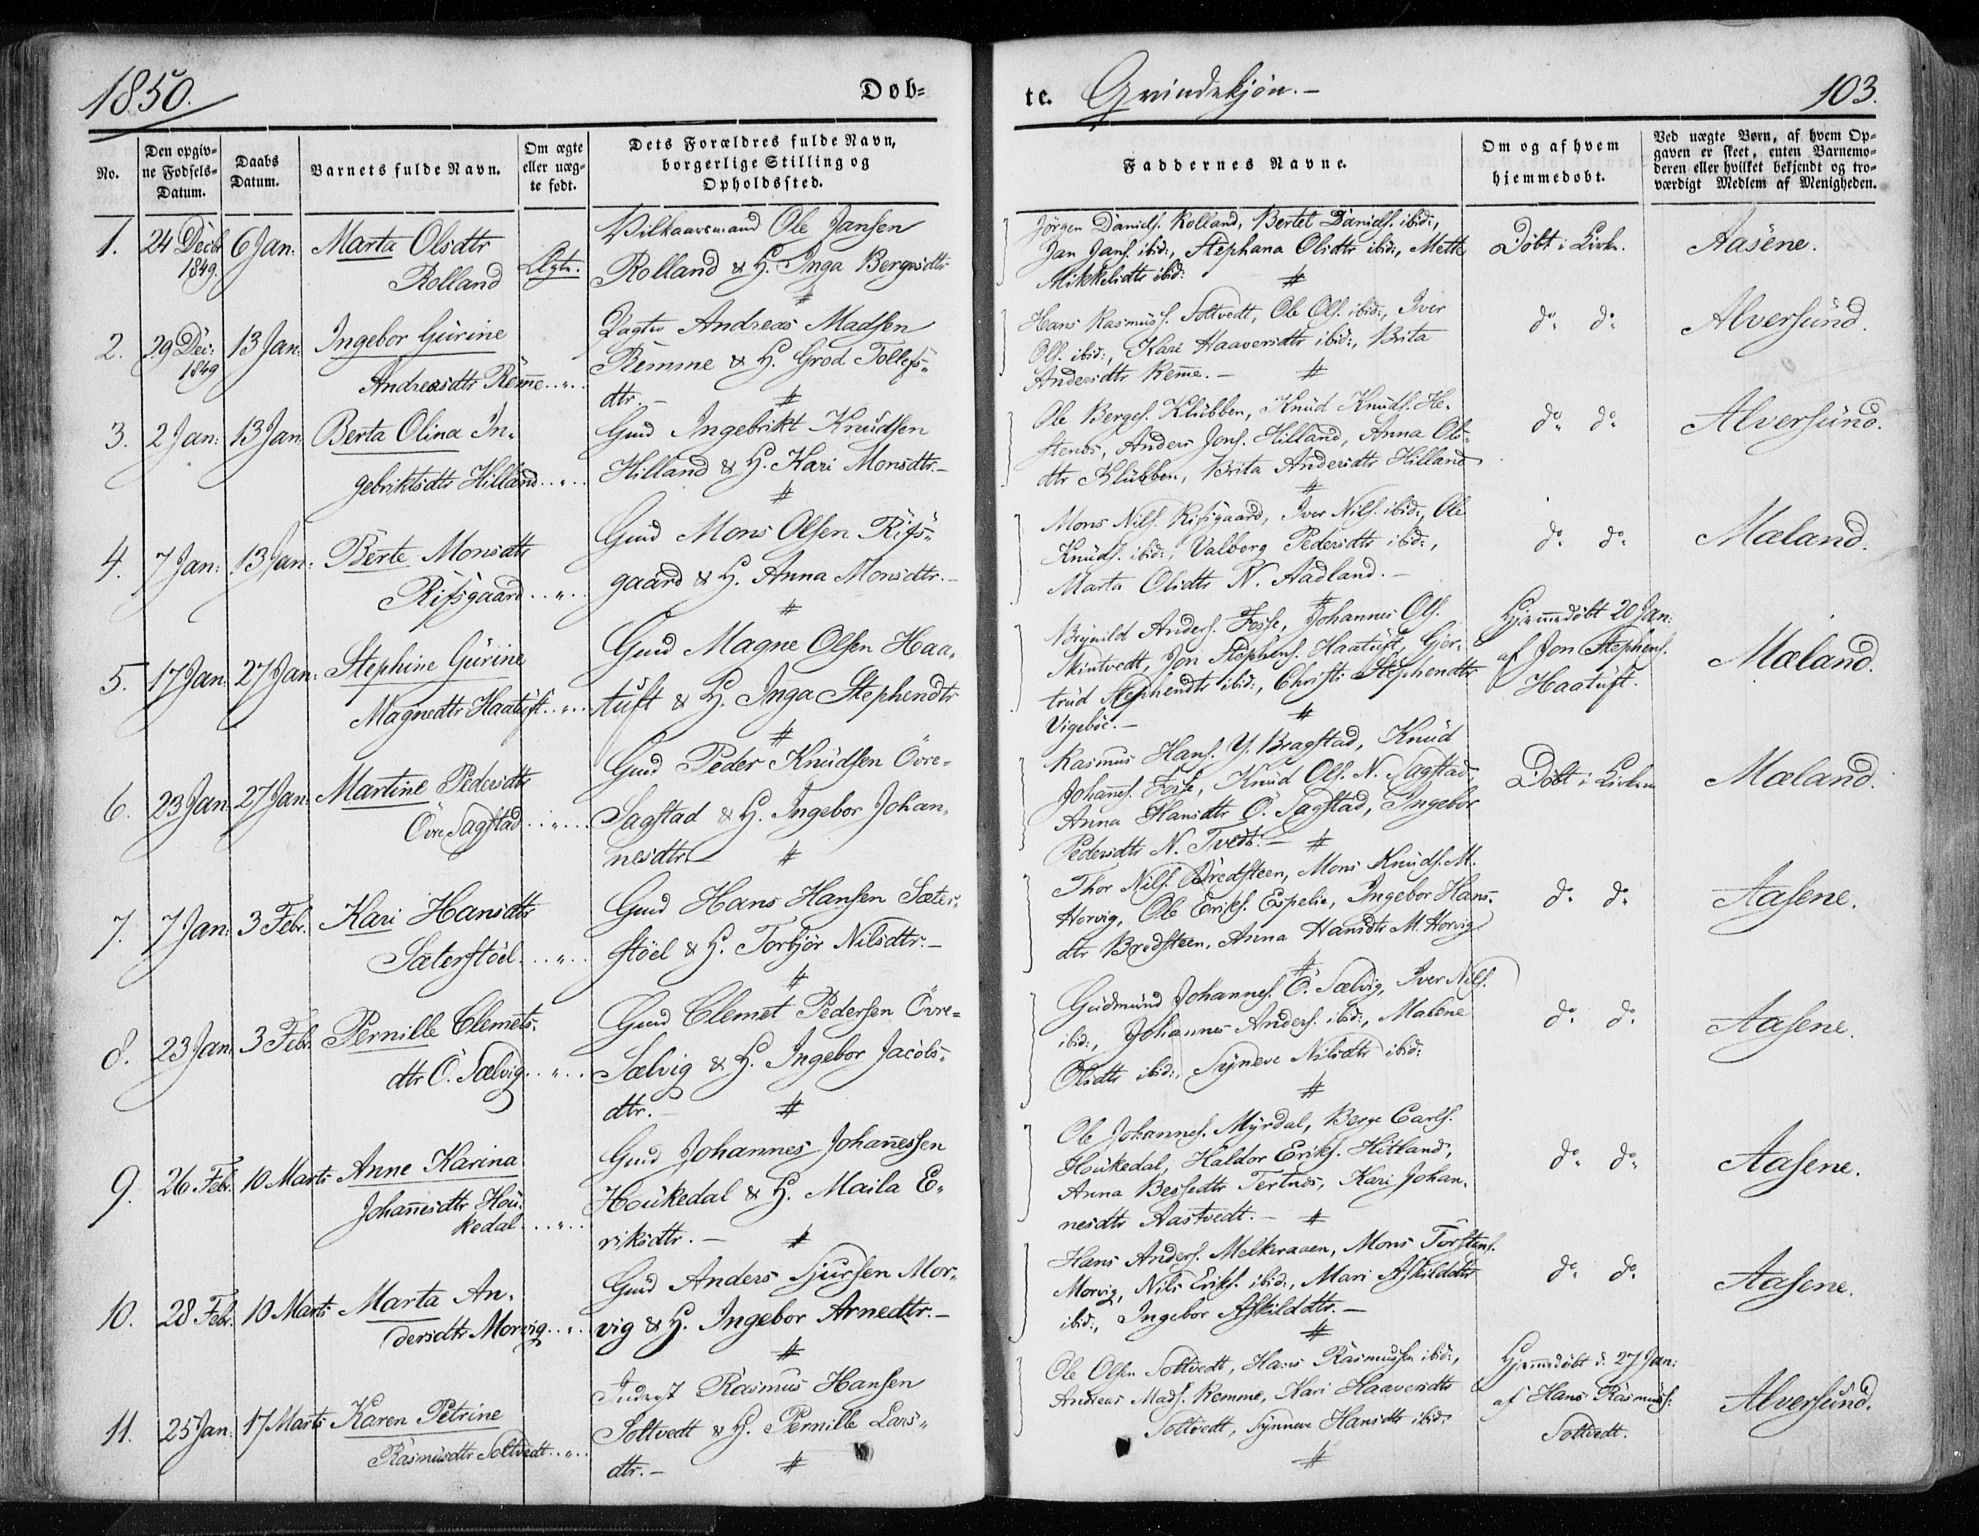 1850.
Døb-
te. Qvindekjøn.-
103.
No.
Den opgiv-
ne Fødsels-
Datum.
Daabs
Datum.
Barnets fulde Navn.
Om ægte
eller uæg-
te født.
Dets Forældres fulde Navn,
borgerlige Stilling og
Opholdssted.
Faddernes Navne.
Om og af hvem
hjemmedøbt.
Ved uægte Børn, af hvem Op-
gaven er skeet, enten Barnemo-
deren eller hvilket bekjendt og tro-
værdigt Medlem af Menigheden.
1. 24 Decb 1849. 6 Jan: Marta Olsdtr
Rolland
Ægte.
Vilkaarsmand Ole Jansen
Rolland & H. Inga Bergesdtr
Jørgen Daniels. Rolland, Bertel Daniels. ibid:,
Jan Jans. ibid:, Stephana Olsdtr ibid:, Mette
Mikkelsdtr ibid:
Døbt i Kirk.
Aasene.
2. 29 Dec: 1849 13 Jan: Ingebor Gurine
Andreasdtr Rem̅e..„.
Andreas Madsen
Remme & H. Grod Tollefs-
dtr.-
Hans Rasmuss. Soltvedt, Ole Ols. ibid:, Iver
Ols. ibid:, Kari Haaversdtr ibid:, Brita
Andersdtr Rem̅e.-
do. do.
Alversund.
3. 2 Jan: 13 Jan: Berta Olina In-
gebriktsdtr Hilland..„..
Gmd Ingebrikt Knudsen
Hilland & H. Kari Monsdtr.-
Ole Berges. Klubben, Knud Knuds. He-
stenes, Anders Jons. Hilland, Anna Ols-
dtr Klubben, Brita Andersdtr Hilland
do. do.
Alversund.
4. 7 Jan: 13 Jan: Berte Monsdtr
Risgaard..„..
Gmd Mons Olsen Ris-
gaard & H. Anna Monsdtr.-
Mons Nils. Risgaard, Iver Nils. ibid:, Ole
Knuds. ibid:, Valborg Pedersdtr ibid:,
Marta Olsdtr N. Aadland.-
do. do.
Mæland.
5. 17 Jan: 27 Jan: Stephine Gurine
Magnedtr Haatuft..„..
Gmd Magne Olsen Haa-
tuft & H. Inga Stephendtr
Brynild Anders. Fosse, Johannes Ols.
Skintvedt, Jon Stephens. Haatuft, Gjer-
trud Stephendtr ibid:, Christi Stephendtr
Vigebøe.-
Hjemmedøbt 20 Jan:
af Jon Stephens.
Haatuft.
Mæland.
6. 23 Jan: 27 Jan: Martine Pedersdtr
Øvre Sagstad..„...
Gmd Peder Knudsen Øvre-
Sagstad & H. Ingebor Johan-
nesdtr
Rasmus Hans. Y. Bragstad, Knud
Johans. Fosse, Knud Ols. N. Sagstad,
Anna Hansdtr Ø. Sagstad, Ingebor
Pedersdtr N. Tvedt.-
Døbt i Kirken
Mæland.
7. 7 Jan: 3 Febr. Kari Hansdtr
Sæterstøel..„..
Gmd Hans Hansen Sæter-
støel & H. Torbjør Nilsdtr.-
Thor Nils. Bredsteen, Mons Knuds. M.
Horvig, Ole Eriks. Espelie, Ingebor Hans-
dtr Bredsteen, Anna Hansdtr M. Horvig
do. do.
Aasene.
8. 23 Jan: 3 Febr. Pernille Clemets-
dtr Ø. Sælvig..„..
Gmd Clemet Pedersen Øvre-
Sælvig & H. Ingebor Jacobs-
dtr.-
Gudmund Johannes. Ø. Sælvig, Iver Nils.
ibid:, Johannes Anders. ibid:, Malene
Olsdtr ibid:, Synneve Nilsdtr ibid:
do. do.
Aasene.
9. 26 Feb. 10 Marts Anne Karina
Johan̅esdtr Hou-
kedal..„..
Gmd Johannes Johan̅essen
Houkedal & H. Maila E-
riksdtr.-
Ole Johannes. Myrdal, Berge Carls.
Houkedal, Haldor Eriks. Hitland,
Anna Bessedtr Tertnes, Kari Johan-
nesdtr Aastvedt.-
do. do.
Aasene.
10. 28 Feb. 10 Marts Marta An-
dersdtr Morvig..„..
Gmd Anders Sjursen Mor-
vig & H. Ingebor Arnedtr.-
Hans Anders. Melkeraaen, Mons Torstens.
Morvig, Nils Eriks. ibid:, Mari Askildsdtr
ibid:, Ingebor Askilddtr.-
do. do.
Aasene.
11. 25 Jan: 17 Marts Karen Petrine
Rasmusdtr Soltvedt..„..
Inderst Rasmus Hansen
Soltvedt & H. Pernille Lars-
dtr.-
Ole Olsen Soltvedt, Hans Rasmussen ibid:,
Andreas Mads. Remme, Kari Haaversdtr
Soltvedt, Synneve Hansdtr ibid:
Hjemmedøbt d. 27 Jan:
af Hans Rasmuss.
Soltvedt.
Alversund.